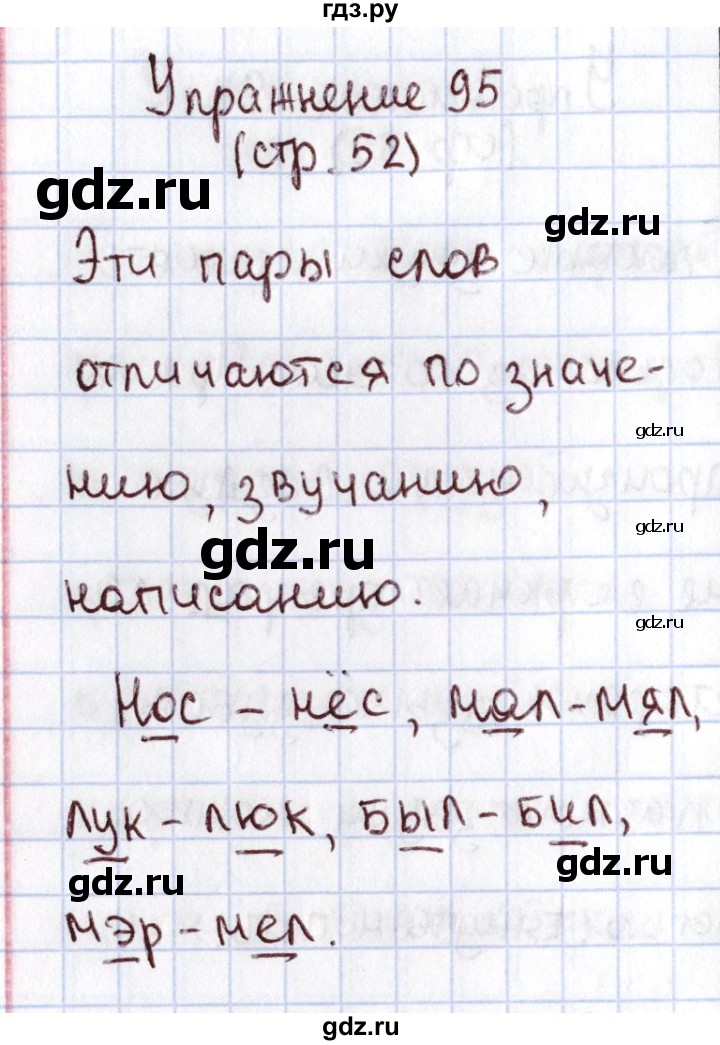 гдз.ру
Упражнение 95
(стр. 52)
gdz.ru
gdz.ru
Эти пары слов
отличаются по значе-
gdz.ru
нию, звучанию,
gdz.ru
gdz.ru
написанию.
gdz.ru
Нос – нёс, мал – мял,
лук – люк, был – бил,
gdz.ru
gdz.ru
мэр – мел.
gdz.ru